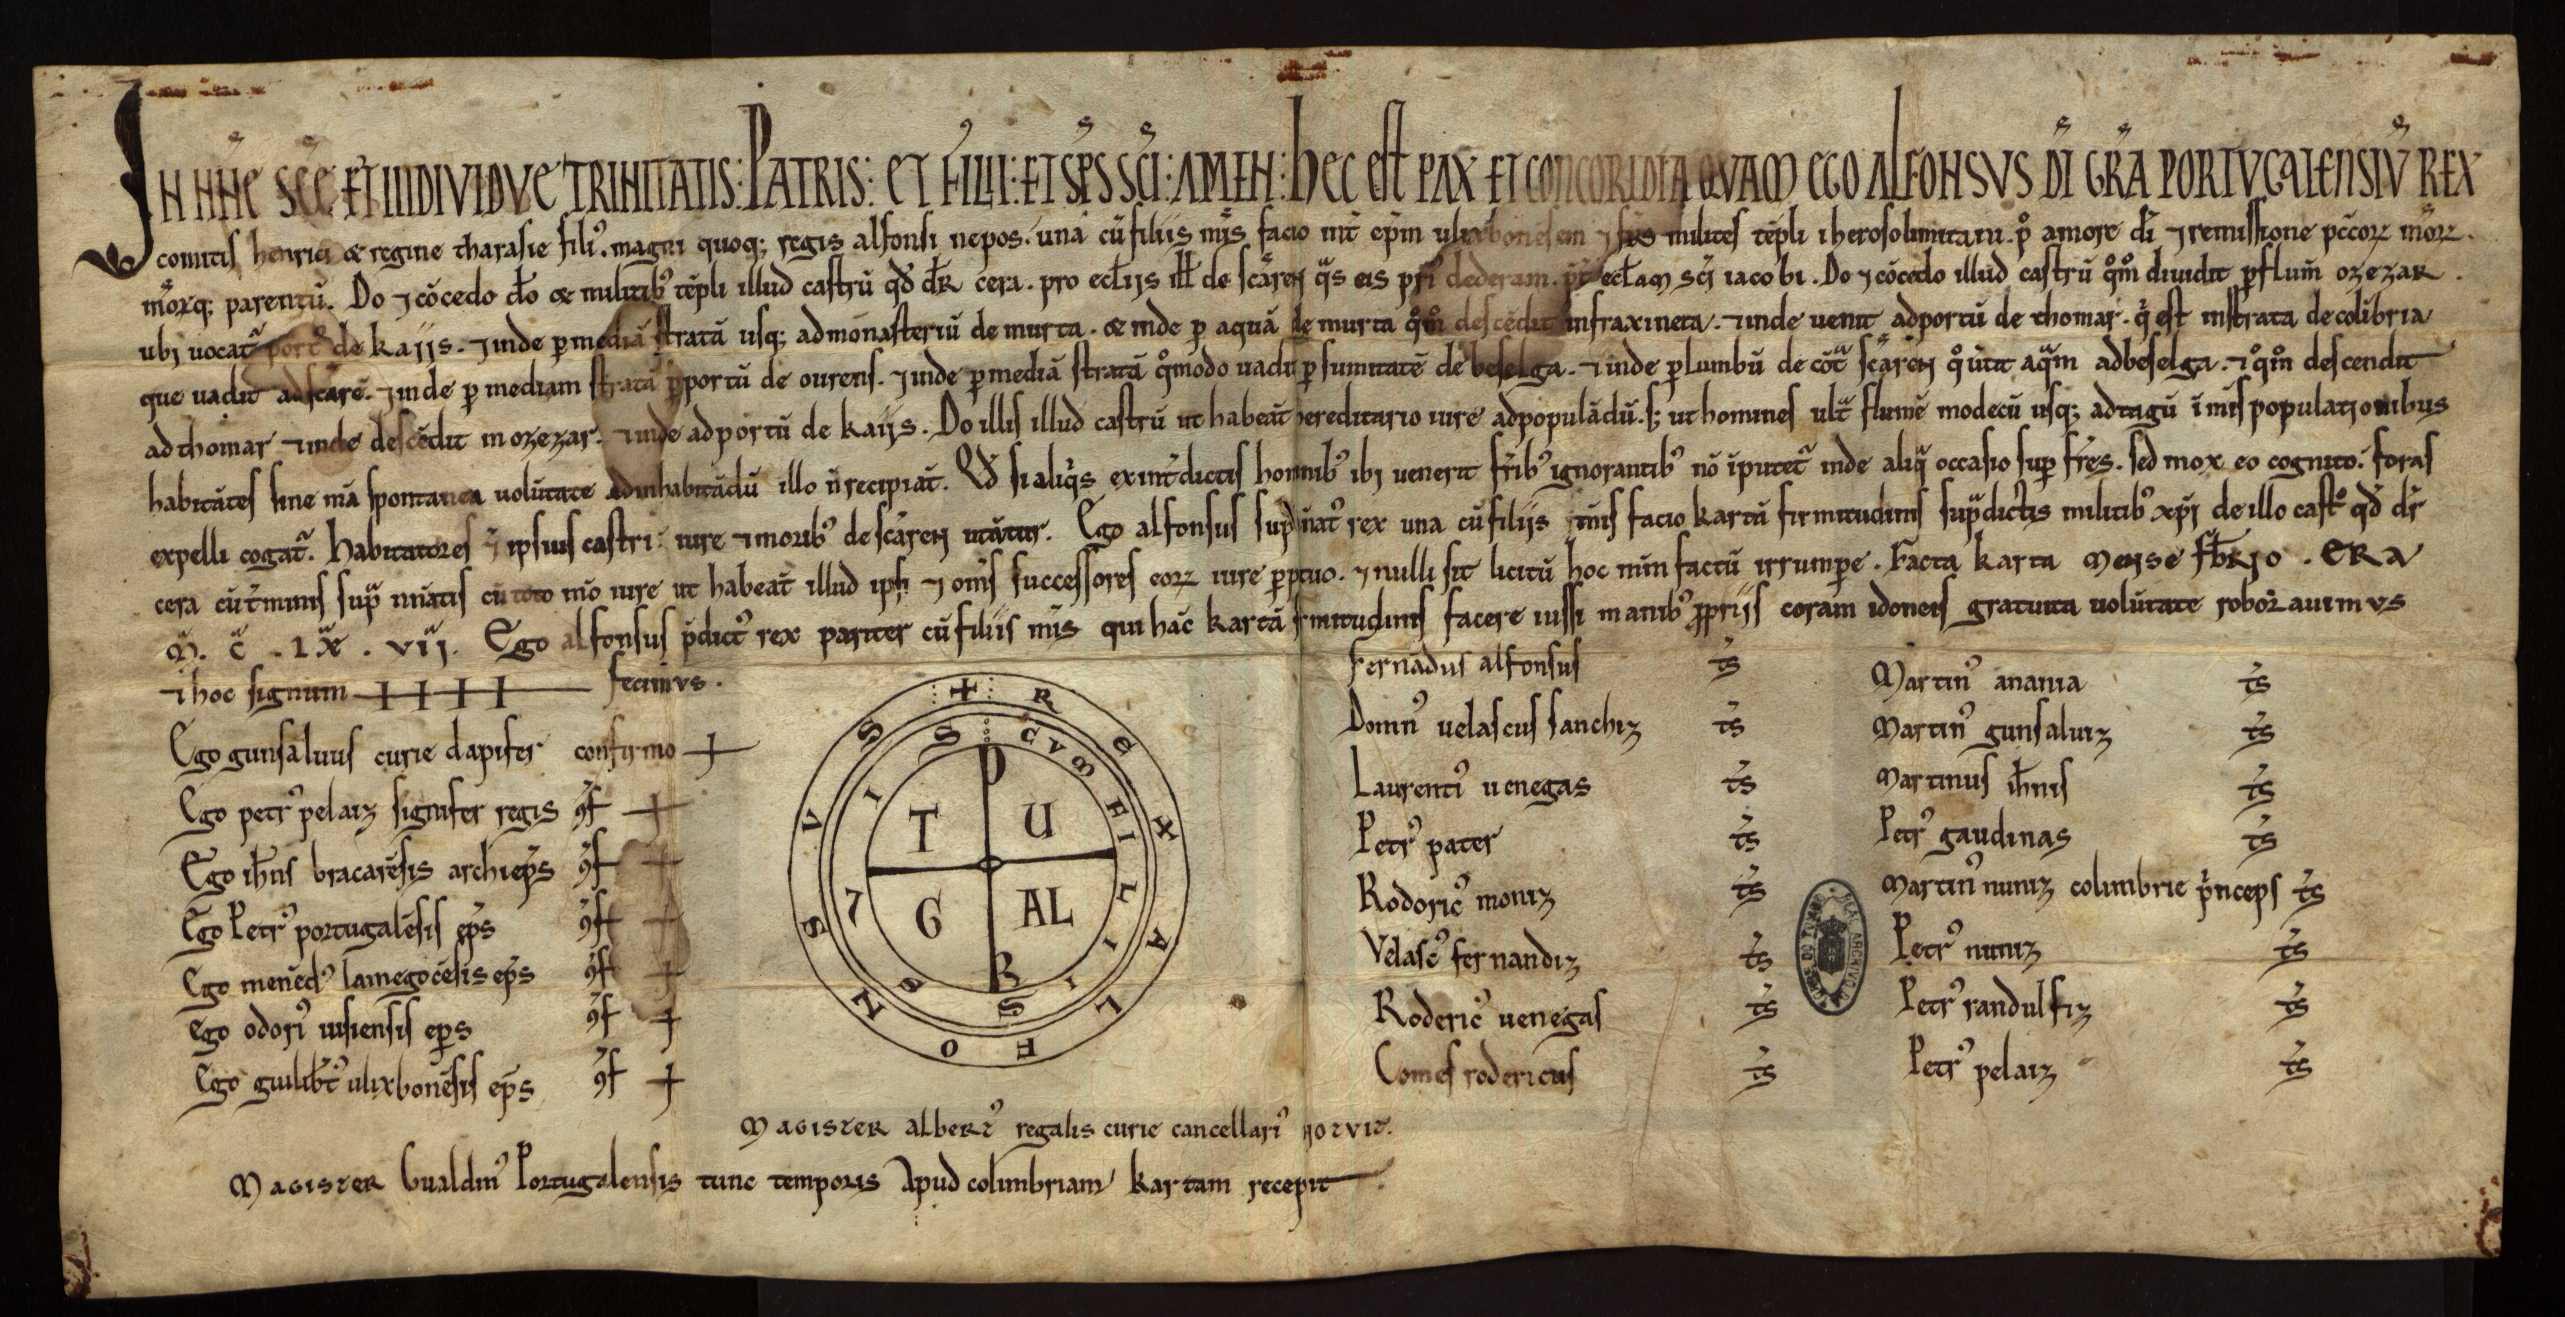 IN NN̄E SC̄E ET INDIVIDVE TRINITATIS: PATRIS: ET FILII: ET SP̄S SC̄I: AMEN: HEC EST PAX ET CONCORIDIA QVAM EGO ALFONSVS DĪ GR̄A PORTVGALENSIV̄ REX
comitis henrici & regine tharasie filiꝰ. magni quoq; regis alfonsi nepos. una cū filiis mͥs facio int̄ ep̄m ulixbonēsem ⁊ fr̄s milites tēpli iherosolimitani. ꝓ amore dī ⁊ remissione pc̄coꝝ moꝝ.
moꝝq; parentū. Do ⁊ cōcedo dō & militibꝰ tēpli illud castrū qd̄ dr̄ cera. pro ecl̄ijs ill̄ de scāren q̄s eis dederam. ecl̄am sc̄i iacobi. Do ⁊ cōcedo illud castrū qͦmͦ diuidit ꝑ flum̄ ozezar.
ubi uocat᷑ portꝰ de kaiis. ⁊ inde ꝑ mediā stratā usq; ad monasteriū de murta. & inde ꝑ aquā de murta qͦmͦ descēdit in fraxineta. ⁊ inde uenit ad portū de thomar. qͥ est in strata de colibria
que uadit ad scārē. ⁊ inde ꝑ mediam stratā ꝑ portū de ourens. ⁊ inde ꝑ mediā stratā qͦmodo uadit ꝑ sumitatē de beselga. ⁊ inde ꝑ lumbū de cōtͣ scāren qͦ ūtit aqͣm ad beselga. ⁊ qͦmͦ descendit
ad thomar ⁊ inde descēdit in ozezar. ⁊ inde ad portū de kaiis. Do illis illud castrū ut habeāt hereditario iure ad populādū. s; ut homines ultͣ flumē modecū usq; ad tagū ī mīs populationibus
habitātes sine mā spontanea uolūtate ad inhabitādū illo ñ recipiāt. Qd̄ si aliqͥs ex int̄dictis hominibꝰ ibi uenerit fr̄ibꝰ ignorantibꝰ nō īputet᷑ inde aliqͣ occasio suꝑ fr̄es. sed mox eo cognito. foras
expelli cogat᷑. Habitatores ū ipsius castri: iure ⁊ moribꝰ de scāren utātur. Ego alfonsus sup̄ natꝰ rex una cū filiis mīs facio kartā firmitudinis supͣdictis militibꝰ xp̄i de illo castͦ qd̄ dr̄
cera cū t̄minis supͣ nn̄atis cū toto mō iure ut habeāt illud ipsi ⁊ om̄s successores eoꝝ iure ꝑpetuo. ⁊ nulli sit licitū hoc mīn factū irrumpere. Facta karta mense fb̄rio. ERA
M. C. LX. VII. Ego alfonsus p̄dictꝰ rex pariter cū filiis mīs qui hāc kartā firmitudinis facere iussi manibꝰ ꝓpriis coram idoneis gratuita uolūtate roborauimus
⁊ hoc signum ++++ fecimus.
Ego gunsaluus curie dapifer confirmo +
Ego petrꝰ pelaiz signifer regis ꝯf +
Ego ih̄ns bracarēsis archiep̄s ꝯf +
Ego Petrꝰ portugalēsis ep̄s ꝯf +
Ego menēdꝰ lamegocēsis ep̄s ꝯf +
Ego odoriꝰ uisiensis ep̄s ꝯf +
Ego guilib̄tꝰ ulixbonēsis ep̄s ꝯf +
+ REX ALFONSVS
CVM FILIIS SVIS
P O R T U G AL
Fernādus alfonsus t̄s
Domnꝰ uelascus sanchiz t̄s
Laurentiꝰ uenegas t̄s
Petrꝰ pater t̄s
Rodoricꝰ moniz t̄s
Velascꝰ fernandiz t̄s
Rodericꝰ uenegas t̄s
Comes rodericus t̄s
Martinꝰ anaaia t̄s
Martinꝰ gunsaluiz t̄s
Martinus ih̄nis t̄s
Petrꝰ gaudinas t̄s
Martinꝰ nuniz colimbrie p̄nceps t̄s
Petrꝰ nuniz t̄s
Petrꝰ randulfiz t̄s
Petrꝰ pelaiz t̄s
REAL ARCHIVO DA TORRE DO TOMBO
Magister albertꝰ regalis curie cancellariꝰ notuit.
Magister Gualdinꝰ Portugalensis tunc temporis Apud colimbriam kartam recepit.